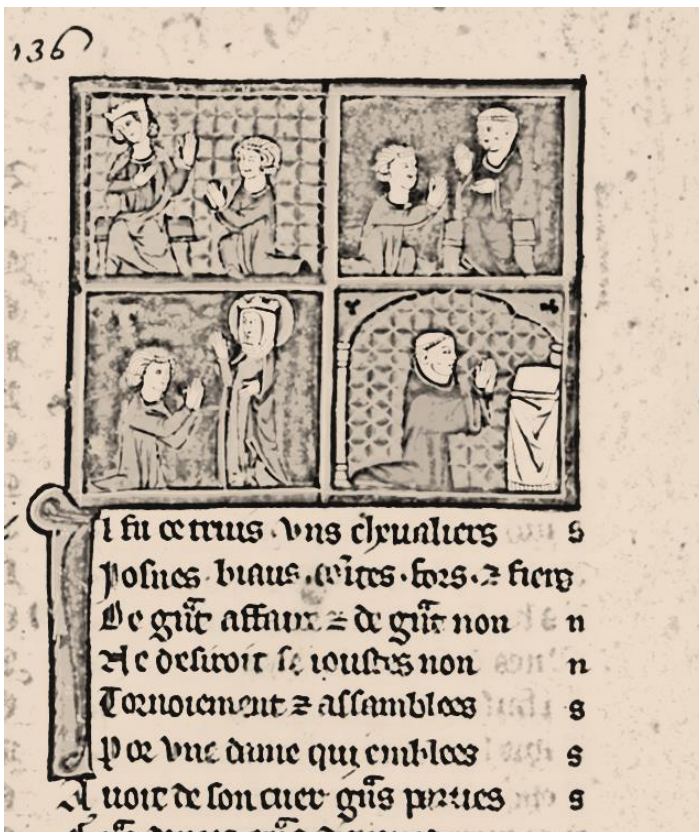 136
Il fu ce truis . vns cheualiers s
Iosnes . biaus . cōites . fors . ⁊ fiers
De gͣnt affaire ⁊ de gͣnt non n
Ne desiroit se ioustes non n
Tornoiement ⁊ assamblees s
Por vne dame qui emblees s
Auoit de son cuer gͣns parties s